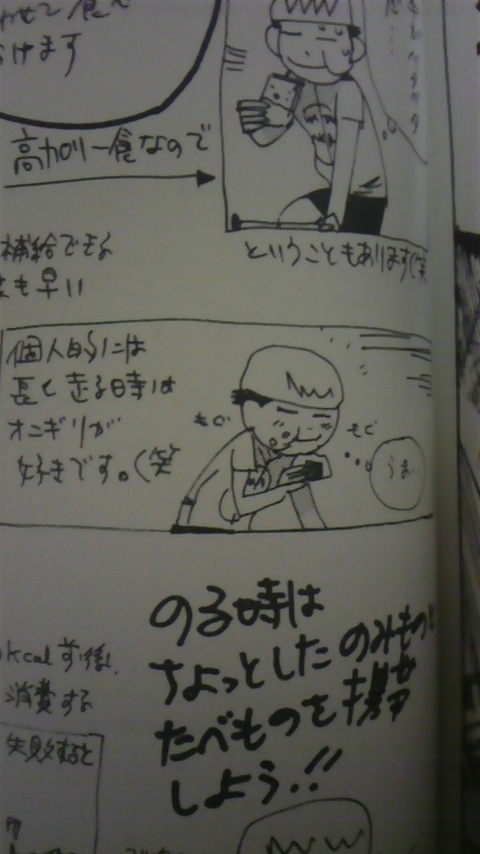 わせて食べ
けます
高カロリー食なので
ということもあります(笑
補給できる
も早い
個人的には
長く走る時は
オニギリが
好きです。(笑
もぐ
もぐ
うま
のる時は
ちょっとした のみものと
たべものを携帯
しよう!!
kcal前後
消費する
失敗すると